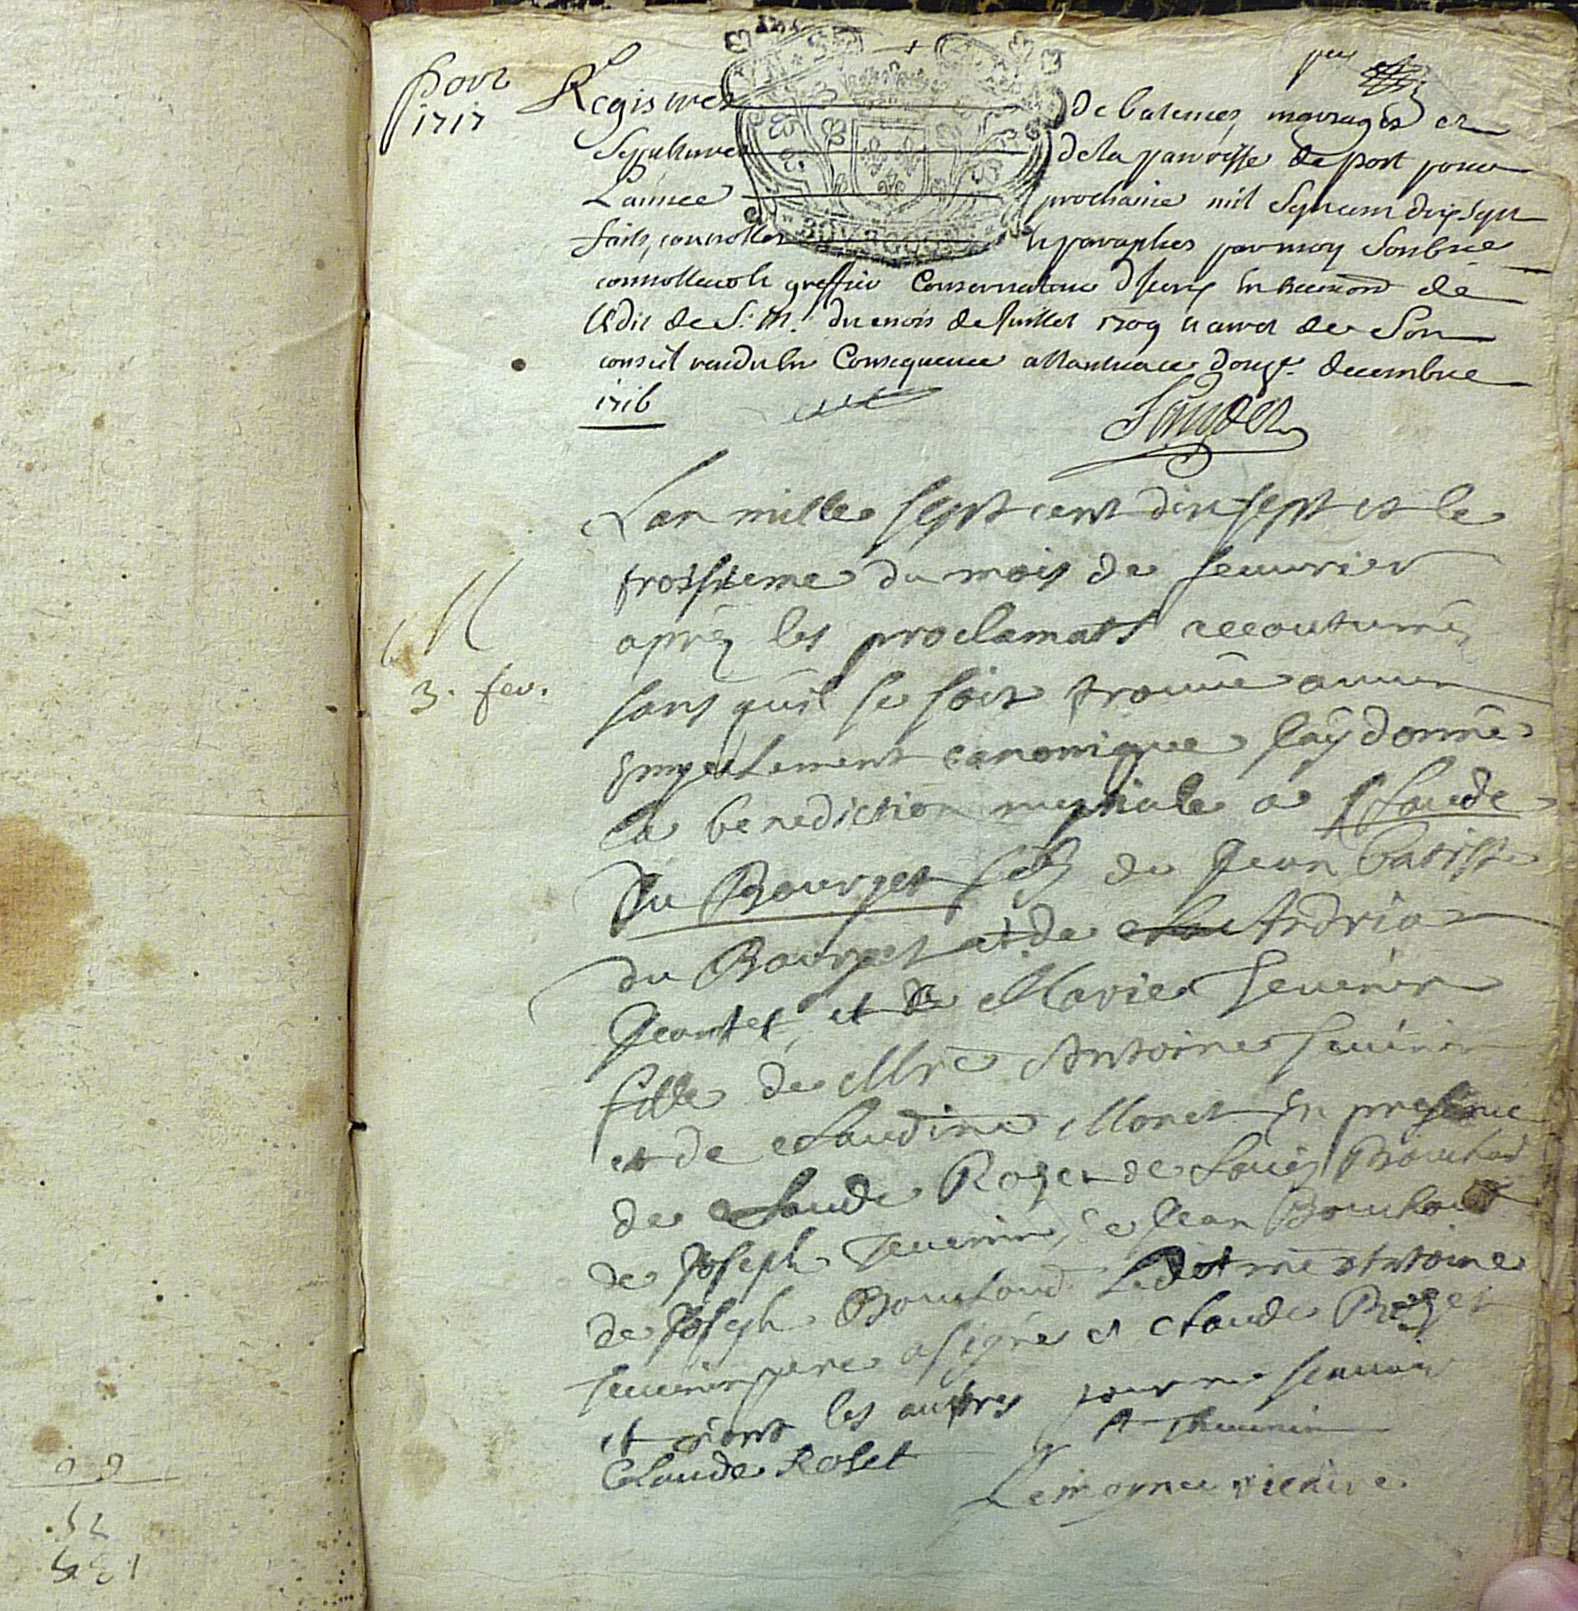 pour
1717
Registres de batemes, mariages et
Sepultures de la parroisse de port pour
L'année prochaine mil Sept cent dix Sept
faits, controllés et paraphés par moy Soubné
connolleur greffier Conservateur de
L'Edit de S. M. du mois de Juillet 1709 et arret de Son
conseil rendu En Consequence a Nantua ce douze decembre
1716
M
3. fev.
L'an mille sept cent dix sept et le
troisieme du mois de feuvrier
apréz les proclamats accoutuméz
sans qu'il se soit trouué aucun
empechement canonique j'aÿ donné
la benediction nuptiale a Claude
du Bourget filz de Jean Batiste
du Bourget et de Andria
Jeantet, et de Marie Teuenin
fille de Mre Antoine Teuénin
et de Claudine Monet En presence
de Claude Rozet de Louis Bouchard
de Joseph Teuenin, de Jean Bouchard
de Joseph Bouchard Ledit me Antoine
Teuenin pere a signé et Claude Rozet
et n'ont les autres pour ne scauoir
A Theuenin
Claude Roset
Lemoyne vicaire